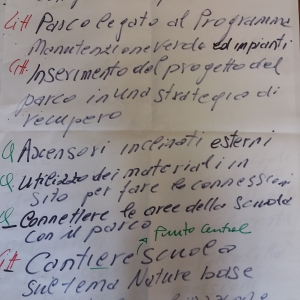 Citt Parco legato al Programma
Manutenzione verde ed impianti
Citt. Inserimento del progetto del
parco in una strategia di
recupero
Q Ascensori inclinati esterni
Q. Utilizzo dei materiali in
sito per fare le connessioni
Q - Connettere le aree della scuola
con il parco
Punto Central
Citt Cantiere scuola
sul tema Nature base